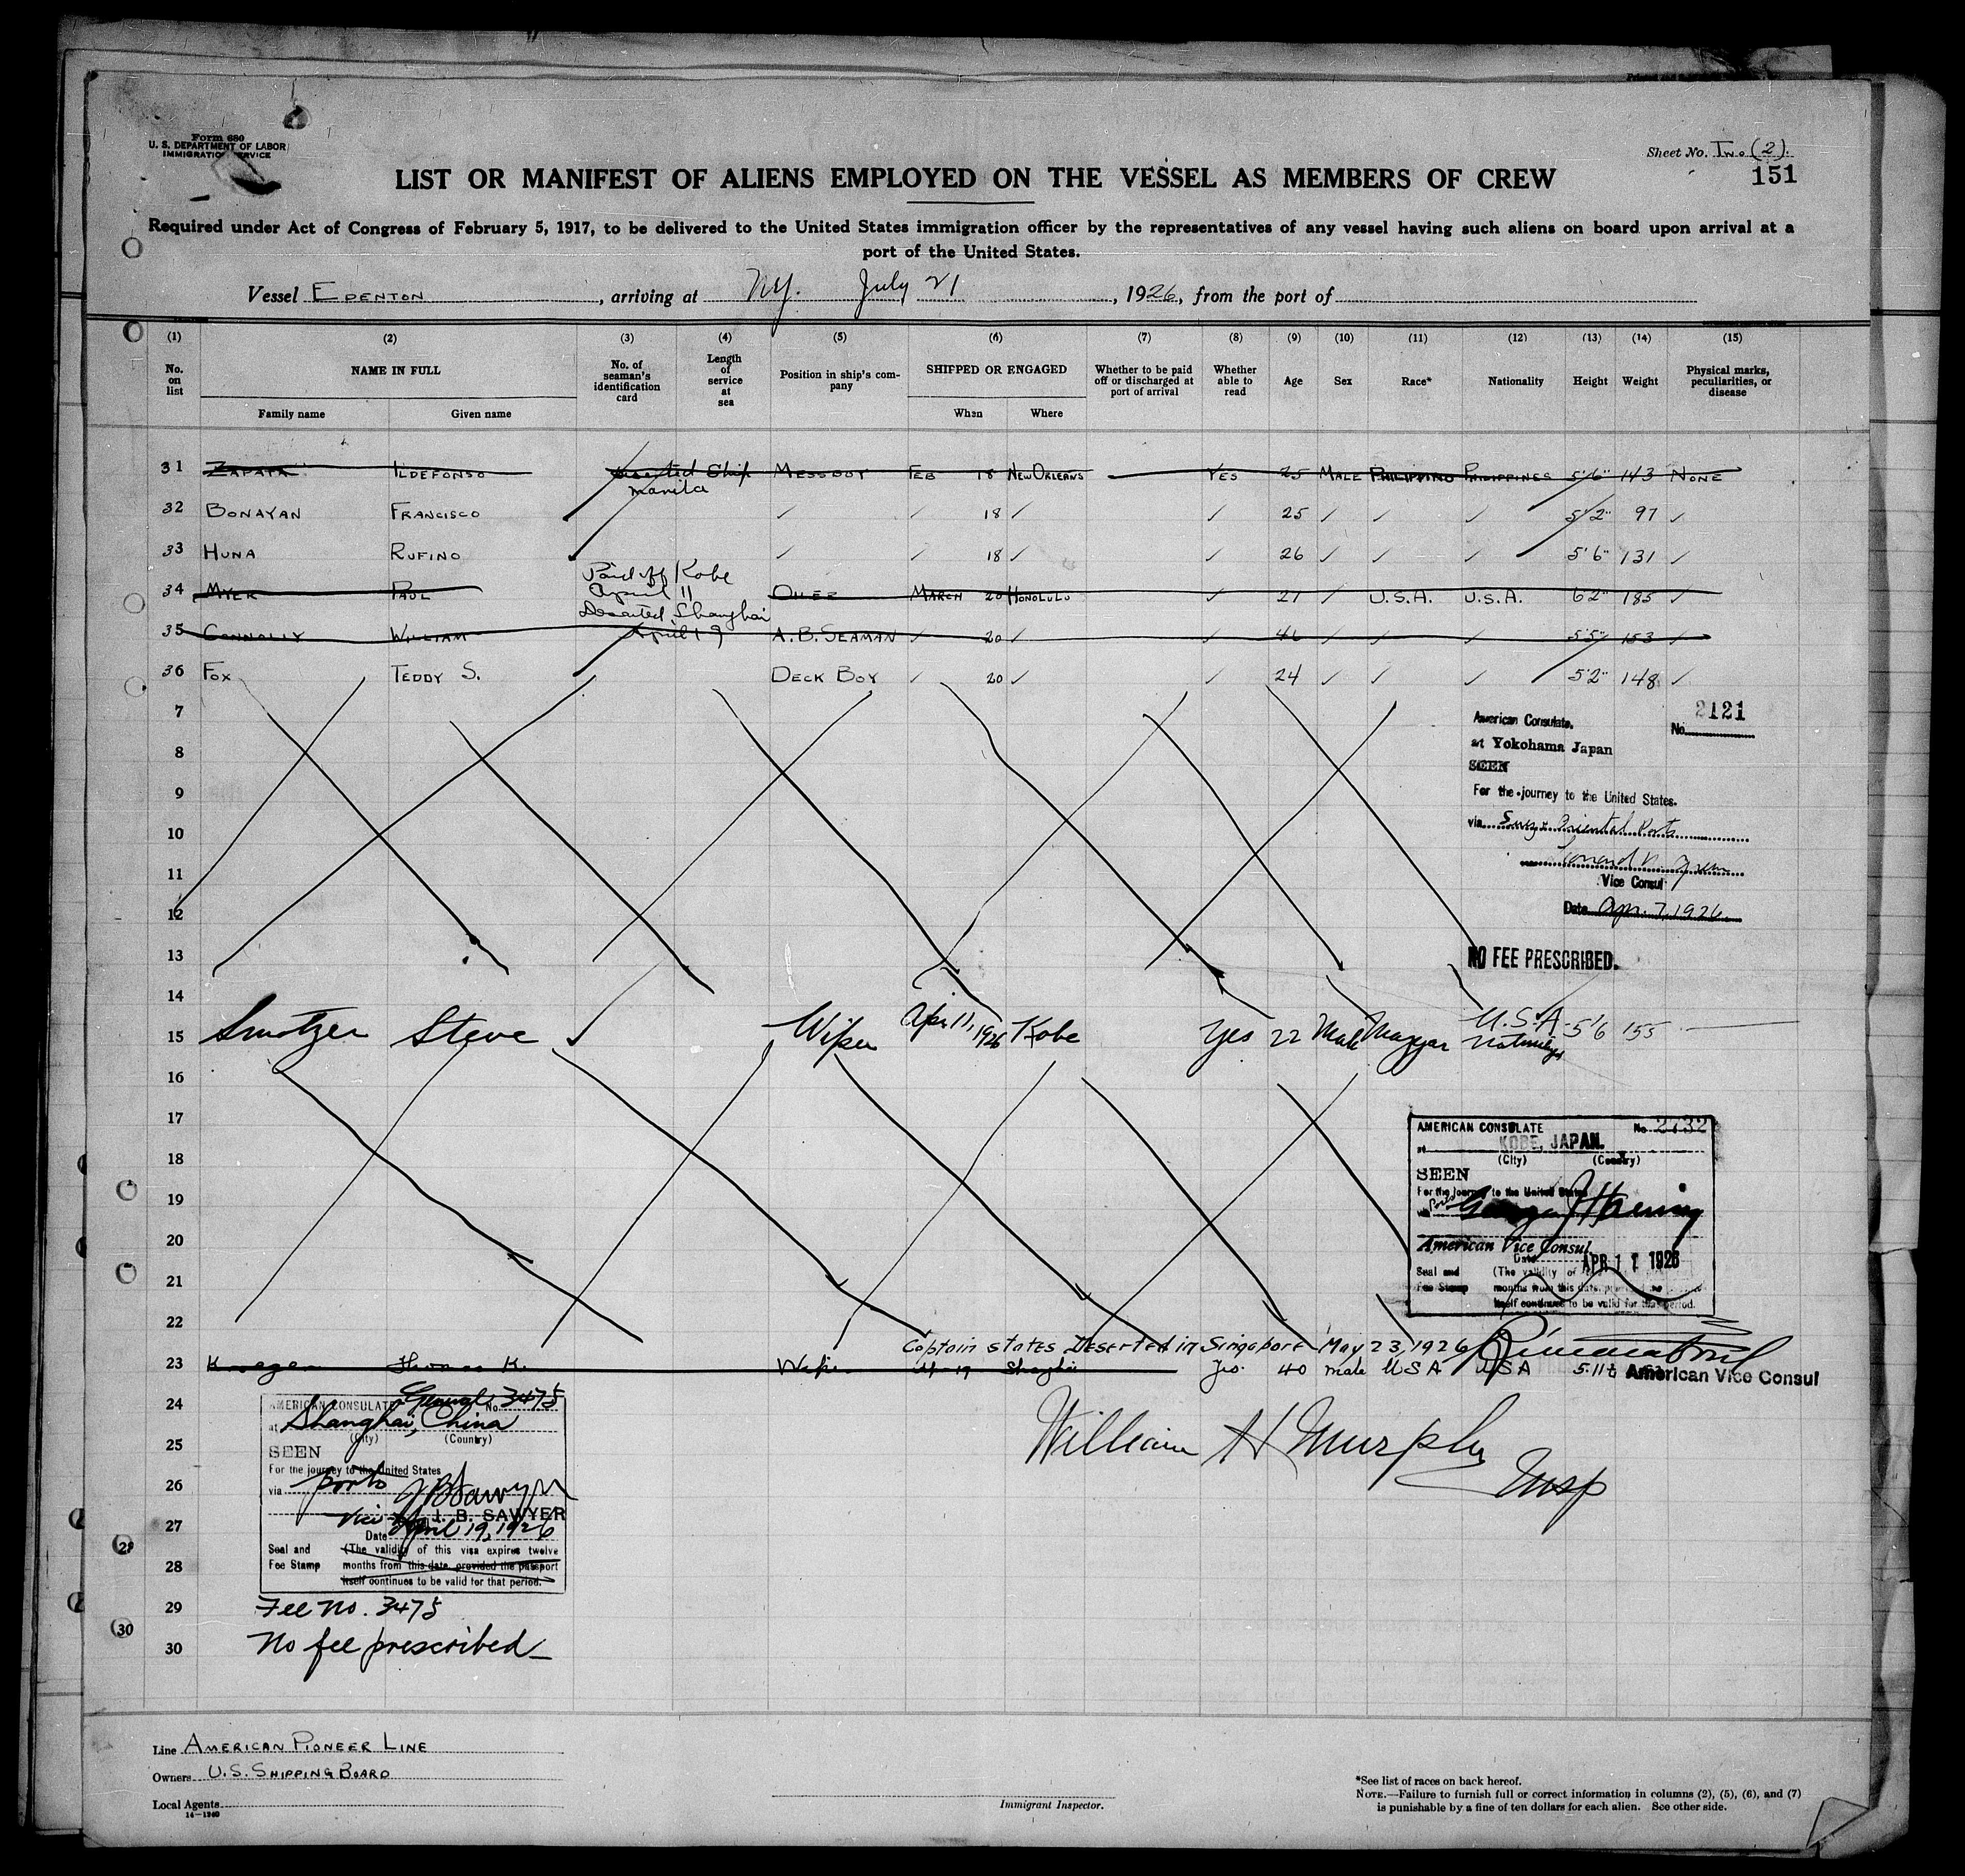 Form 680
U. S. DEPARTMENT OF LABOR
IMMIGRATION SERVICE
Sheet No. Two (2).
151
LIST OR MANIFEST OF ALIENS EMPLOYED ON THE VESSEL AS MEMBERS OF CREW
Required under Act of Congress of February 5, 1917, to be delivered to the United States immigration officer by the representatives of any vessel having such aliens on board upon arrival at a
port of the United States.
Vessel EDENTON, arriving at NY. July 21, 1926, from the port of
(1) (2) (3) (4) (5) (6) (7) (8) (9) (10) (11) (12) (13) (14) (15)
No. on list NAME IN FULL Family name Given name No. of seaman's identification card Length of service at sea Position in ship's company SHIPPED OR ENGAGED When Where Whether to be paid off or discharged at port of arrival Whether able to read Age Sex Race* Nationality Height Weight Physical marks, peculiarities, or disease
31 ZAPATA ILDEFONSO Deserted Ship MESSBOY FEB 18 NEW ORLEANS YES 25 MALE PHILIPPINO PHILIPPINES 5'6" 143 NONE
manila
32 BONAYAN FRANCISCO ✓ ✓ 18 ✓ ✓ 25 ✓ ✓ ✓ 5'2" 97 ✓
33 HUNA RUFINO ✓ ✓ 18 ✓ ✓ 26 ✓ ✓ ✓ 5'6" 131 ✓
Paid off Kobe
34 MYER PAUL April 11 OILER MARCH 20 HONOLULU ✓ 27 ✓ U.S.A. U.S.A. 6'2" 185 ✓
Deserted Shanghai
35 CONNOLLY WILLIAM April 19 A.B. SEAMAN ✓ 20 ✓ ✓ 46 ✓ ✓ ✓ 5'5" 153 ✓
36 FOX TEDDY S. DECK BOY ✓ 20 ✓ ✓ 24 ✓ ✓ ✓ 5'2" 148 ✓
7
8
9
10
11
12
13
14
American Consulate. No. 2121
at Yokohama Japan
SEEN
For the journey to the United States.
via Suez & Oriental Ports
Vice Consul
Date Apr. 7, 1926.
NO FEE PRESCRIBED.
15 Smotzer Steve Wiper Apr 11, 1926 Kobe Yes 22 Male Magyar U.S.A. 5'6 155
16
17
18
19
20
21
22
AMERICAN CONSULATE No. 2732
at KOBE, JAPAN.
(City) (Country)
SEEN
For the journey to the United States
via ports
American Vice Consul.
Date APR 11 1926
Seal and (The validity of
Fee Stamp months from this date
itself continues to be valid for that period.
Captain states Deserted in Singapore May 23, 1926
23 Thomas K. Wiper 4-19 Shanghai Yes 40 male USA USA 5.11½
American Vice Consul
24
25
26
27
28
29
30
AMERICAN CONSULATE General No. 3475
at Shanghai, China
(City) (Country)
SEEN
For the journey to the United States
via ports JB Sawyer
Vice J. B. SAWYER
Date April 19, 1926
Seal and (The validity of this visa expires twelve
Fee Stamp months from this date provided the passport
itself continues to be valid for that period.
Fee No. 3475
No fee prescribed
William H Murphy
Insp
28
30
Line AMERICAN PIONEER LINE
Owners U.S. SHIPPING BOARD
Local Agents
14—1240
Immigrant Inspector.
*See list of races on back hereof.
NOTE.—Failure to furnish full or correct information in columns (2), (5), (6), and (7)
is punishable by a fine of ten dollars for each alien. See other side.